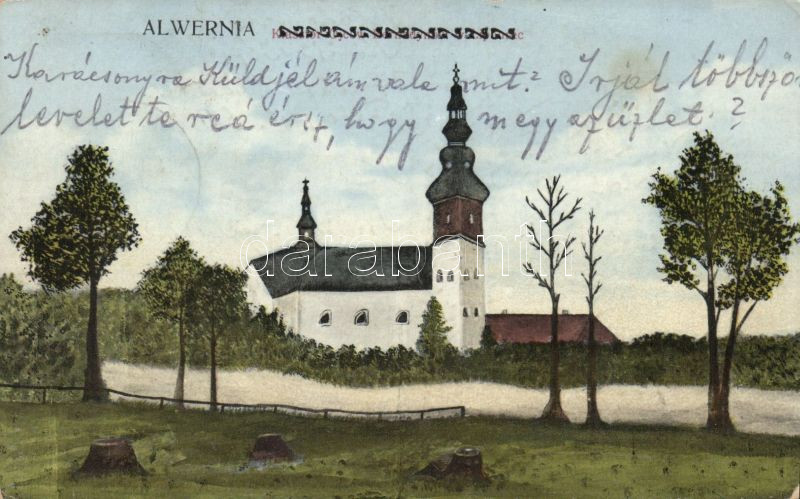 ALWERNIA
Karácsonyra Küldjél ám vala mit? Irjál többszö
levelet te reá érsz, hogy megy az üzlet.?
darabanth